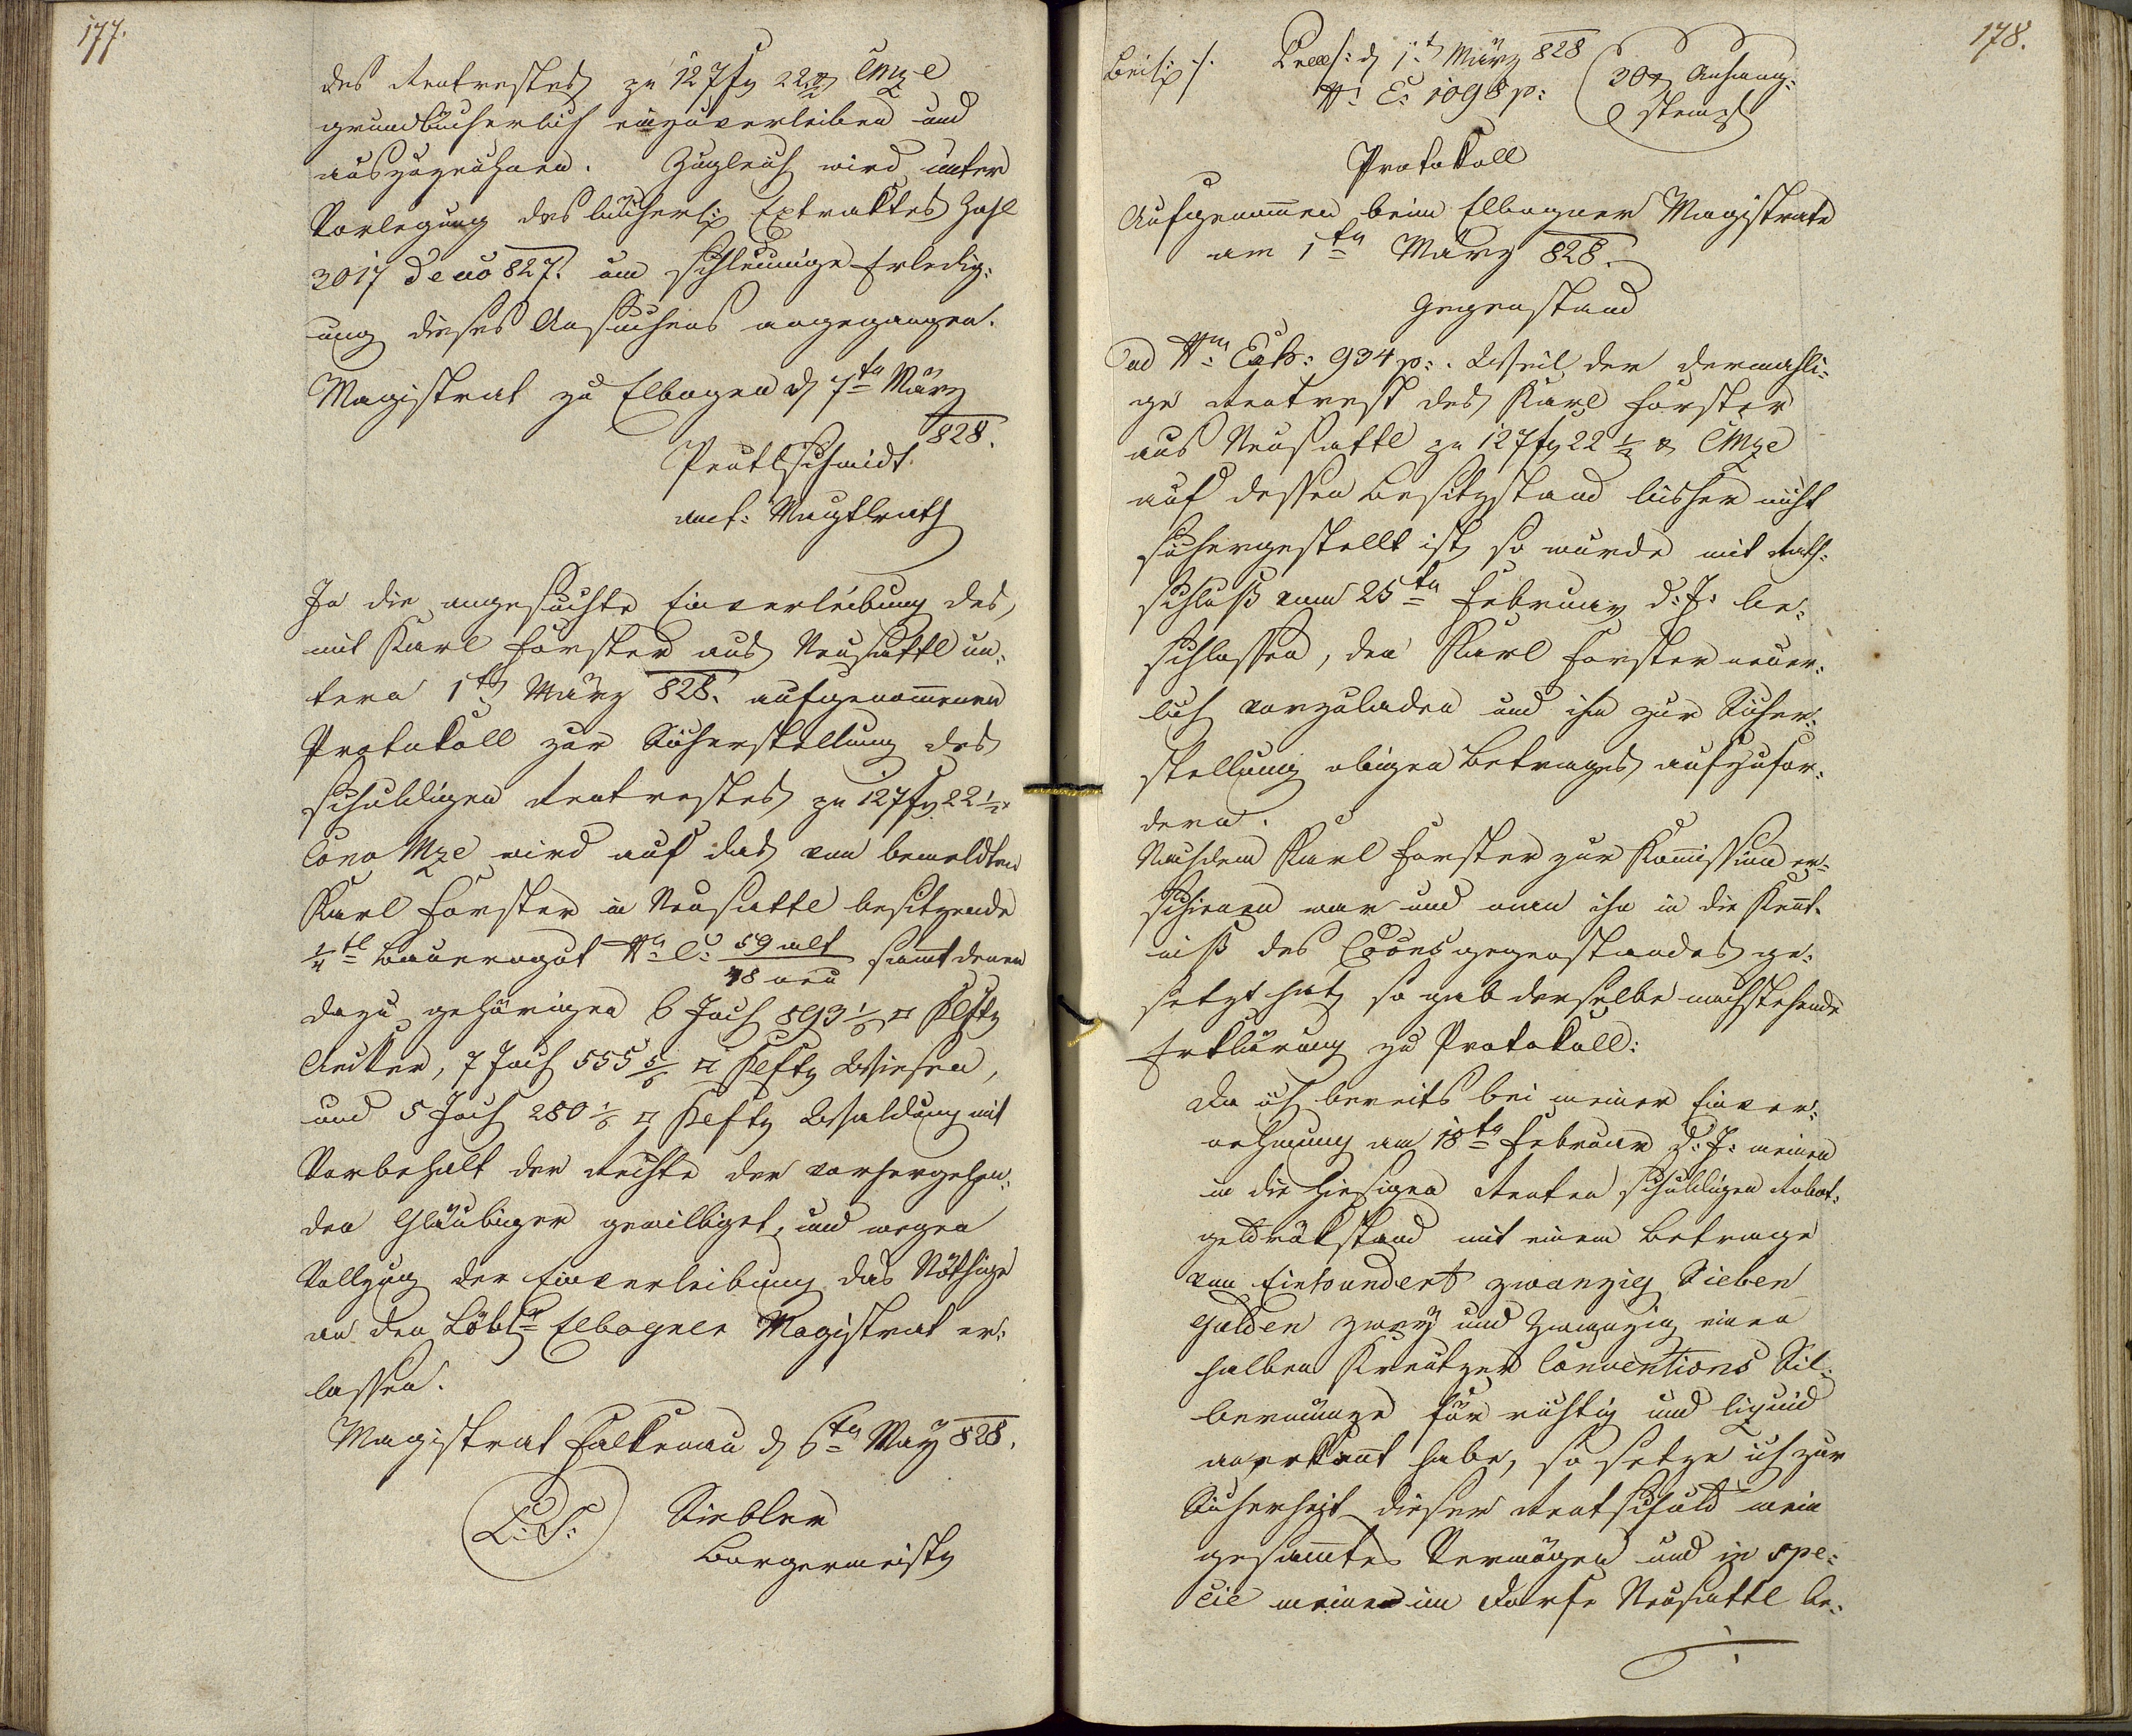 177.
des Rentrestes zu 127 f 22 ½ x CMze
grundbücherlich einzuverleiben und
auszuzeichnen. Zugleich wird unter
Vorlegung des bücherl: Extraktes Zahl
3017 de ao 827. um schleunige Erledig:
ung dieses Ansuchens angegangen.
Magistrat zu Elbogen d 7ten März
828.
Peutlschmidt
Magtlrath
In die angesuchte Einverleibung des,
mit Karl Forster aus Neusattl un:
term 1ten März 828. aufgenommenen
Protokoll zur Sicherstellung des
schuldigen Rentrestes zu 127 f 22 ½ x
Conv Mze wird auf das von bemeldten
Karl Forster in Neusattl besitzende
¼tl Bauerngut Nr C: 59 alt / 48 neu sammt denen
dazu gehörigen 6 Joch 893 ⅙ □ Klftr
Aecker, 7 Joch 555 5/6 □ Klftr Wiesen,
und 5 Joch 280 ⅙ □ Klftr Waldung mit
Vorbehalt der Rechte der vorhergehen:
den Gläubiger gewilliget, und wegen
Vollzug der Einverleibung das Nöthige
an den Löbl: Elbogner Magistrat er:
lassen.
Magistrat Falkenau d 6ten May 828.
L: S: Siebler
Burgermeistr
178.
Praes: d 1t März 828
N: E: 1098 p:
30 x Anhang:
stempl
Protokoll
Aufgenommen beim Elbogner Magistrate
am 1ten März 828.
Gegenstand
Ad Nrm Exh: 934 p:. Weil der dermahli:
ge Rentrest des Karl Forster
aus Neusattl zu 127 f 22 ½ x CMze
auf dessen Besitzstand bisher nicht
sichergestellt ist, so wurde mit Rath:
schluß vom 25ten Februar d: J: be:
schlossen, den Karl Forster neuer:
lich vorzuladen und ihn zur Sicher:
stellung obigen Betrages aufzufor:
dern.
Nachdem Karl Forster zur Komission er:
schienen war und man ihn in die Kennt:
niß des Coonsgegenstandes ge:
setzt hat, so gab derselbe nachstehende
Erklärung zu Protokoll:
Da ich bereits bei meiner Einver:
nehmung am 18ten Februar d: J: meinen
in die hiesigen Renten schuldigen Robot:
geldrükstand mit einem Betrage
von Einhundert zwanzig Sieben
Gulden zwey und zwanzig einen
halben Kreutzer Conventions Sil:
bermünze für richtig und liquid
anerkannt habe, so setze ich zur
Sicherheit dieser Rentschuld mein
gesammtes Vermögen und in spe:
cie meine im Dorfe Neusattl be: